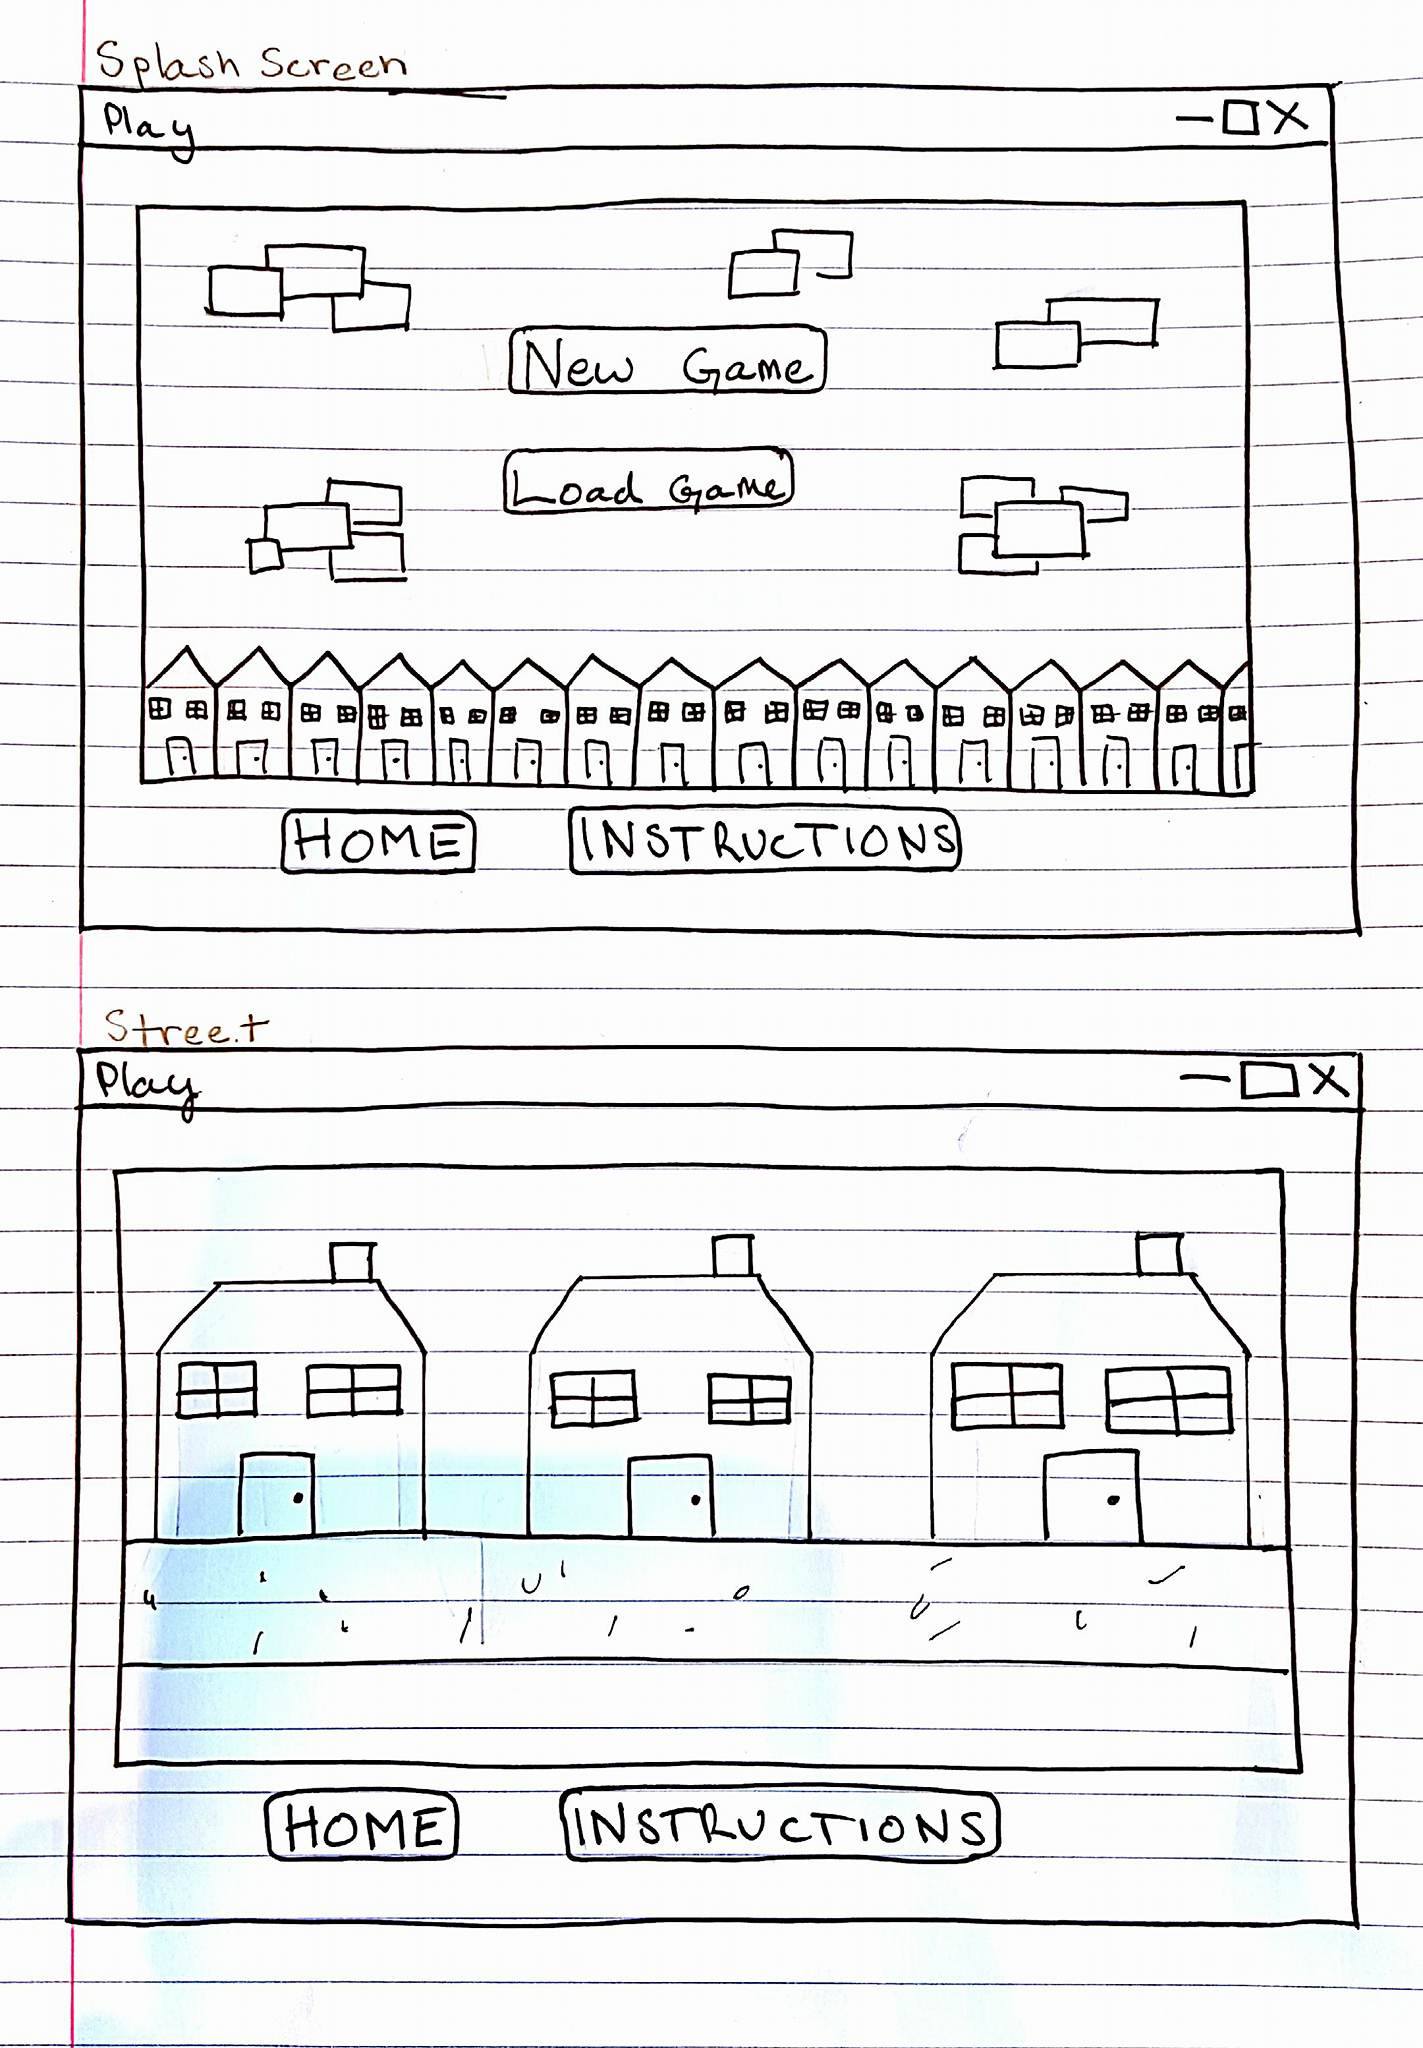 Splash Screen
Play
New Game
Load Game
HOME INSTRUCTIONS
Street
Play
HOME INSTRUCTIONS